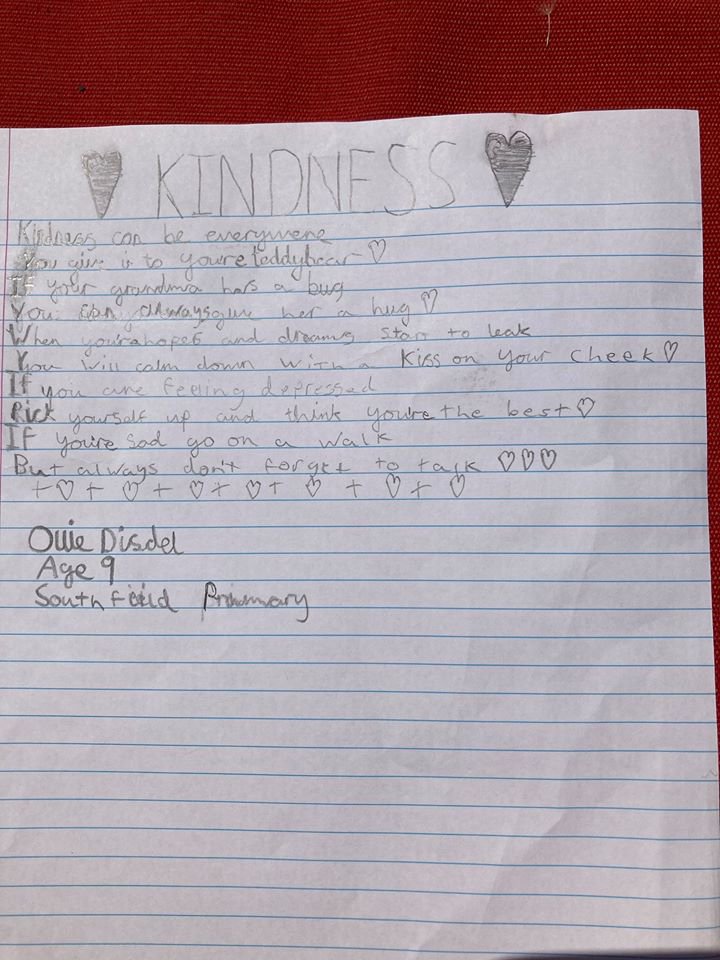 KINDNESS
Kindness can be everywere
You give it to youre teddybear ♡
If your grandma has a bug
You can always give her a hug ♡
When your hopes and dreams start to leak
You will calm down with a kiss on your cheek ♡
If you are feeling depressed
Pick yourself up and think you're the best ♡
If you're sad go on a walk
But always don't forget to talk ♡♡♡
+ ♡ + ♡ + ♡ + ♡ + ♡ + ♡ + ♡
Ollie Disdel
Age 9
Southfeild Primary